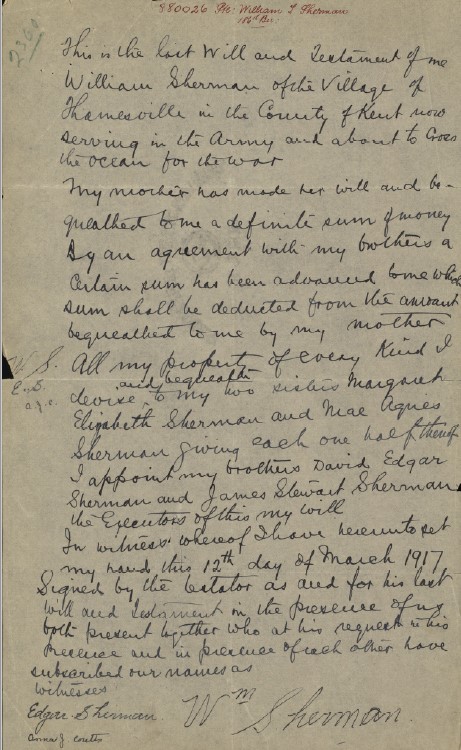 880026 Pte. William T Sherman
186th Bn.
2360
This is the last Will and Testament of me
William Sherman of the Village of
Thamesville in the County of Kent now
serving in the Army and about to Cross
the ocean for the war
My mother has made her will and be-
queathed to me a definite sum of money
By an agreement with my brothers a
Certain sum has been advanced to me which
sum shall be deducted from the amount
bequeathed to me by my mother
W. S. All my property of every Kind I
E. S. and bequeath
a.g.c. devise to my two sisters Margaret
Elizabeth Sherman and Mae Agnes
Sherman giving each one half thereof
I appoint my brothers David Edgar
Sherman and James Stewart Sherman
the Executors of this my will
In witness whereof I have hereunto set
my hand this 12th day of March 1917
Signed by the testator as and for his last
will and Testament in the presence of us
both present together who at his request in his
presence and in presence of each other have
subscribed our names as
witnesses
Edgar Sherman Wm Sherman
Anna J Coutts